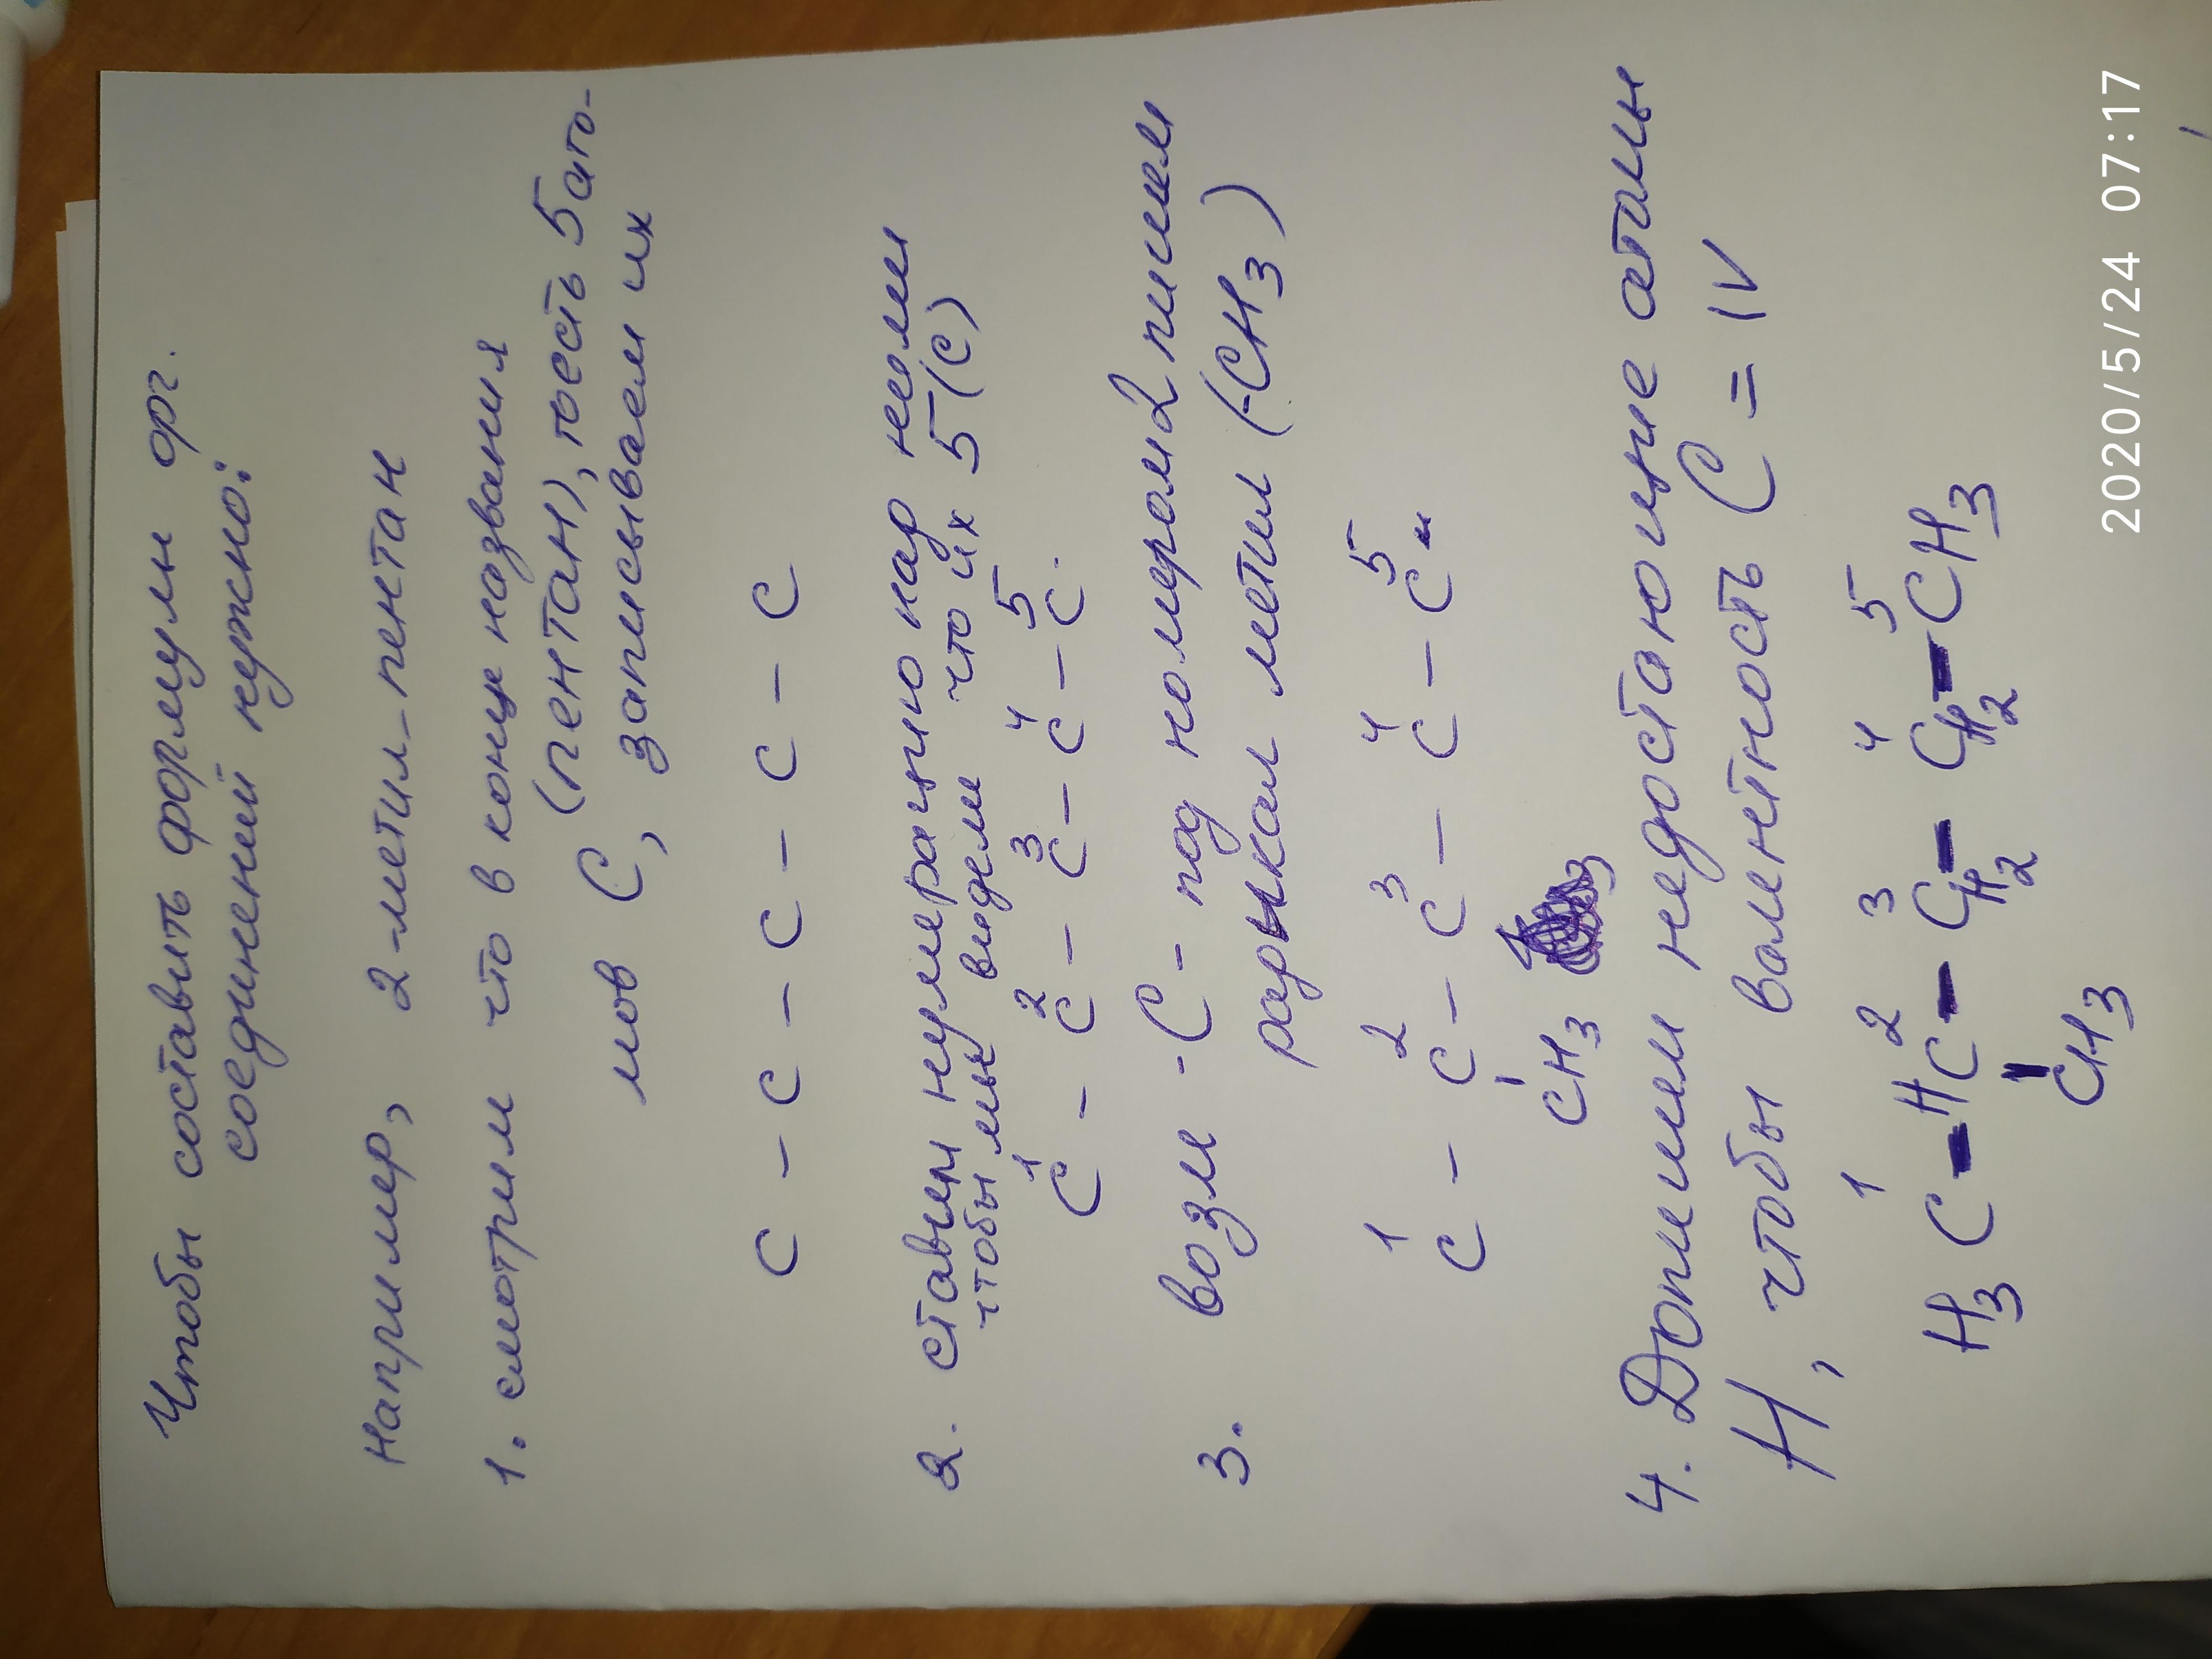 Чтобы составить формулы орг.
соединений нужно:
например, 2-метил-пентан
1. смотрим что в конце названия
(пентан), тоесть 5 ато-
мов С, записываем их
С – С – С – С – С
2. ставим нумерацию над ними
чтобы мы видели что их 5 (С)
1 2 3 4 5
С – С – С – С – С.
3. возм -С- под номером 2 пишем
радикал метил (-СН3)
1 2 3 4 5
С – С – С – С – С
СН3
4. Допишем недостающие атомы
Н, чтобы валентность С = IV
1 2 3 4 5
Н3С – НС – СН2 – СН2 – СН3
СН3
2020/5/24 07:17